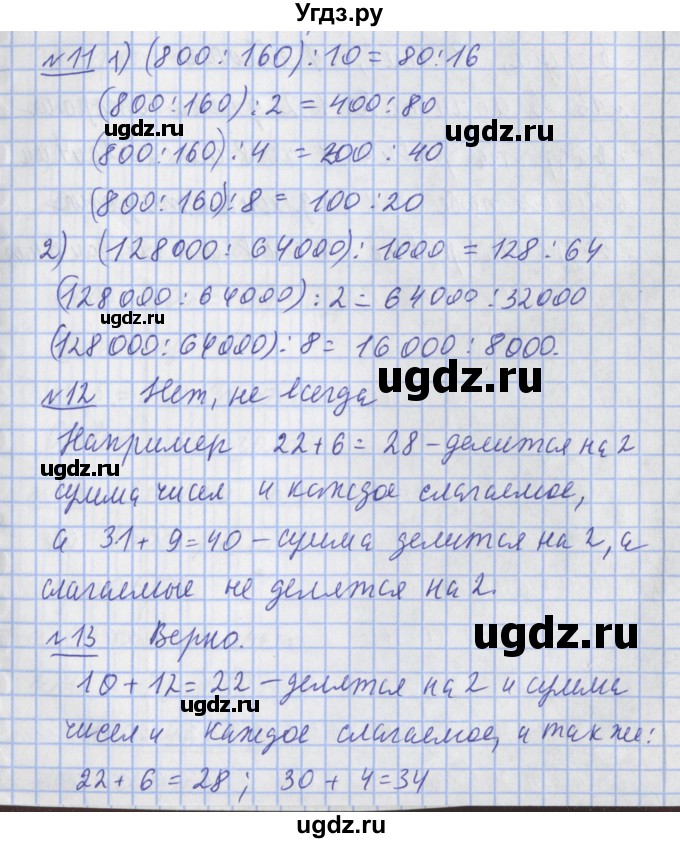 Угдз.ру
№11 1) (800:160):10=80:16
(800:160):2=400:80
ugdz.ru ugdz.ru
(800:160):4=200:40
(800:160):8=100:20
ugdz.ru
2) (128000:64000):1000=128:64
(128000:64000):2=64000:32000
ugdz.ru
(128000:64000):8=16000:8000.
ugdz.ru
№12 Нет, не всегда
Например 22+6=28-делится на 2
ugdz.ru
сумма чисел и каждое слагаемое,
а 31+9=40-сумма делится на 2, а
ugdz.ru
слагаемые не делятся на 2.
№13 Верно.
ugdz.ru
10+12=22-делятся на 2 и сумма
ugdz.ru
чисел и каждое слагаемое, и также:
22+6=28; 30+4=34
ugdz.ru